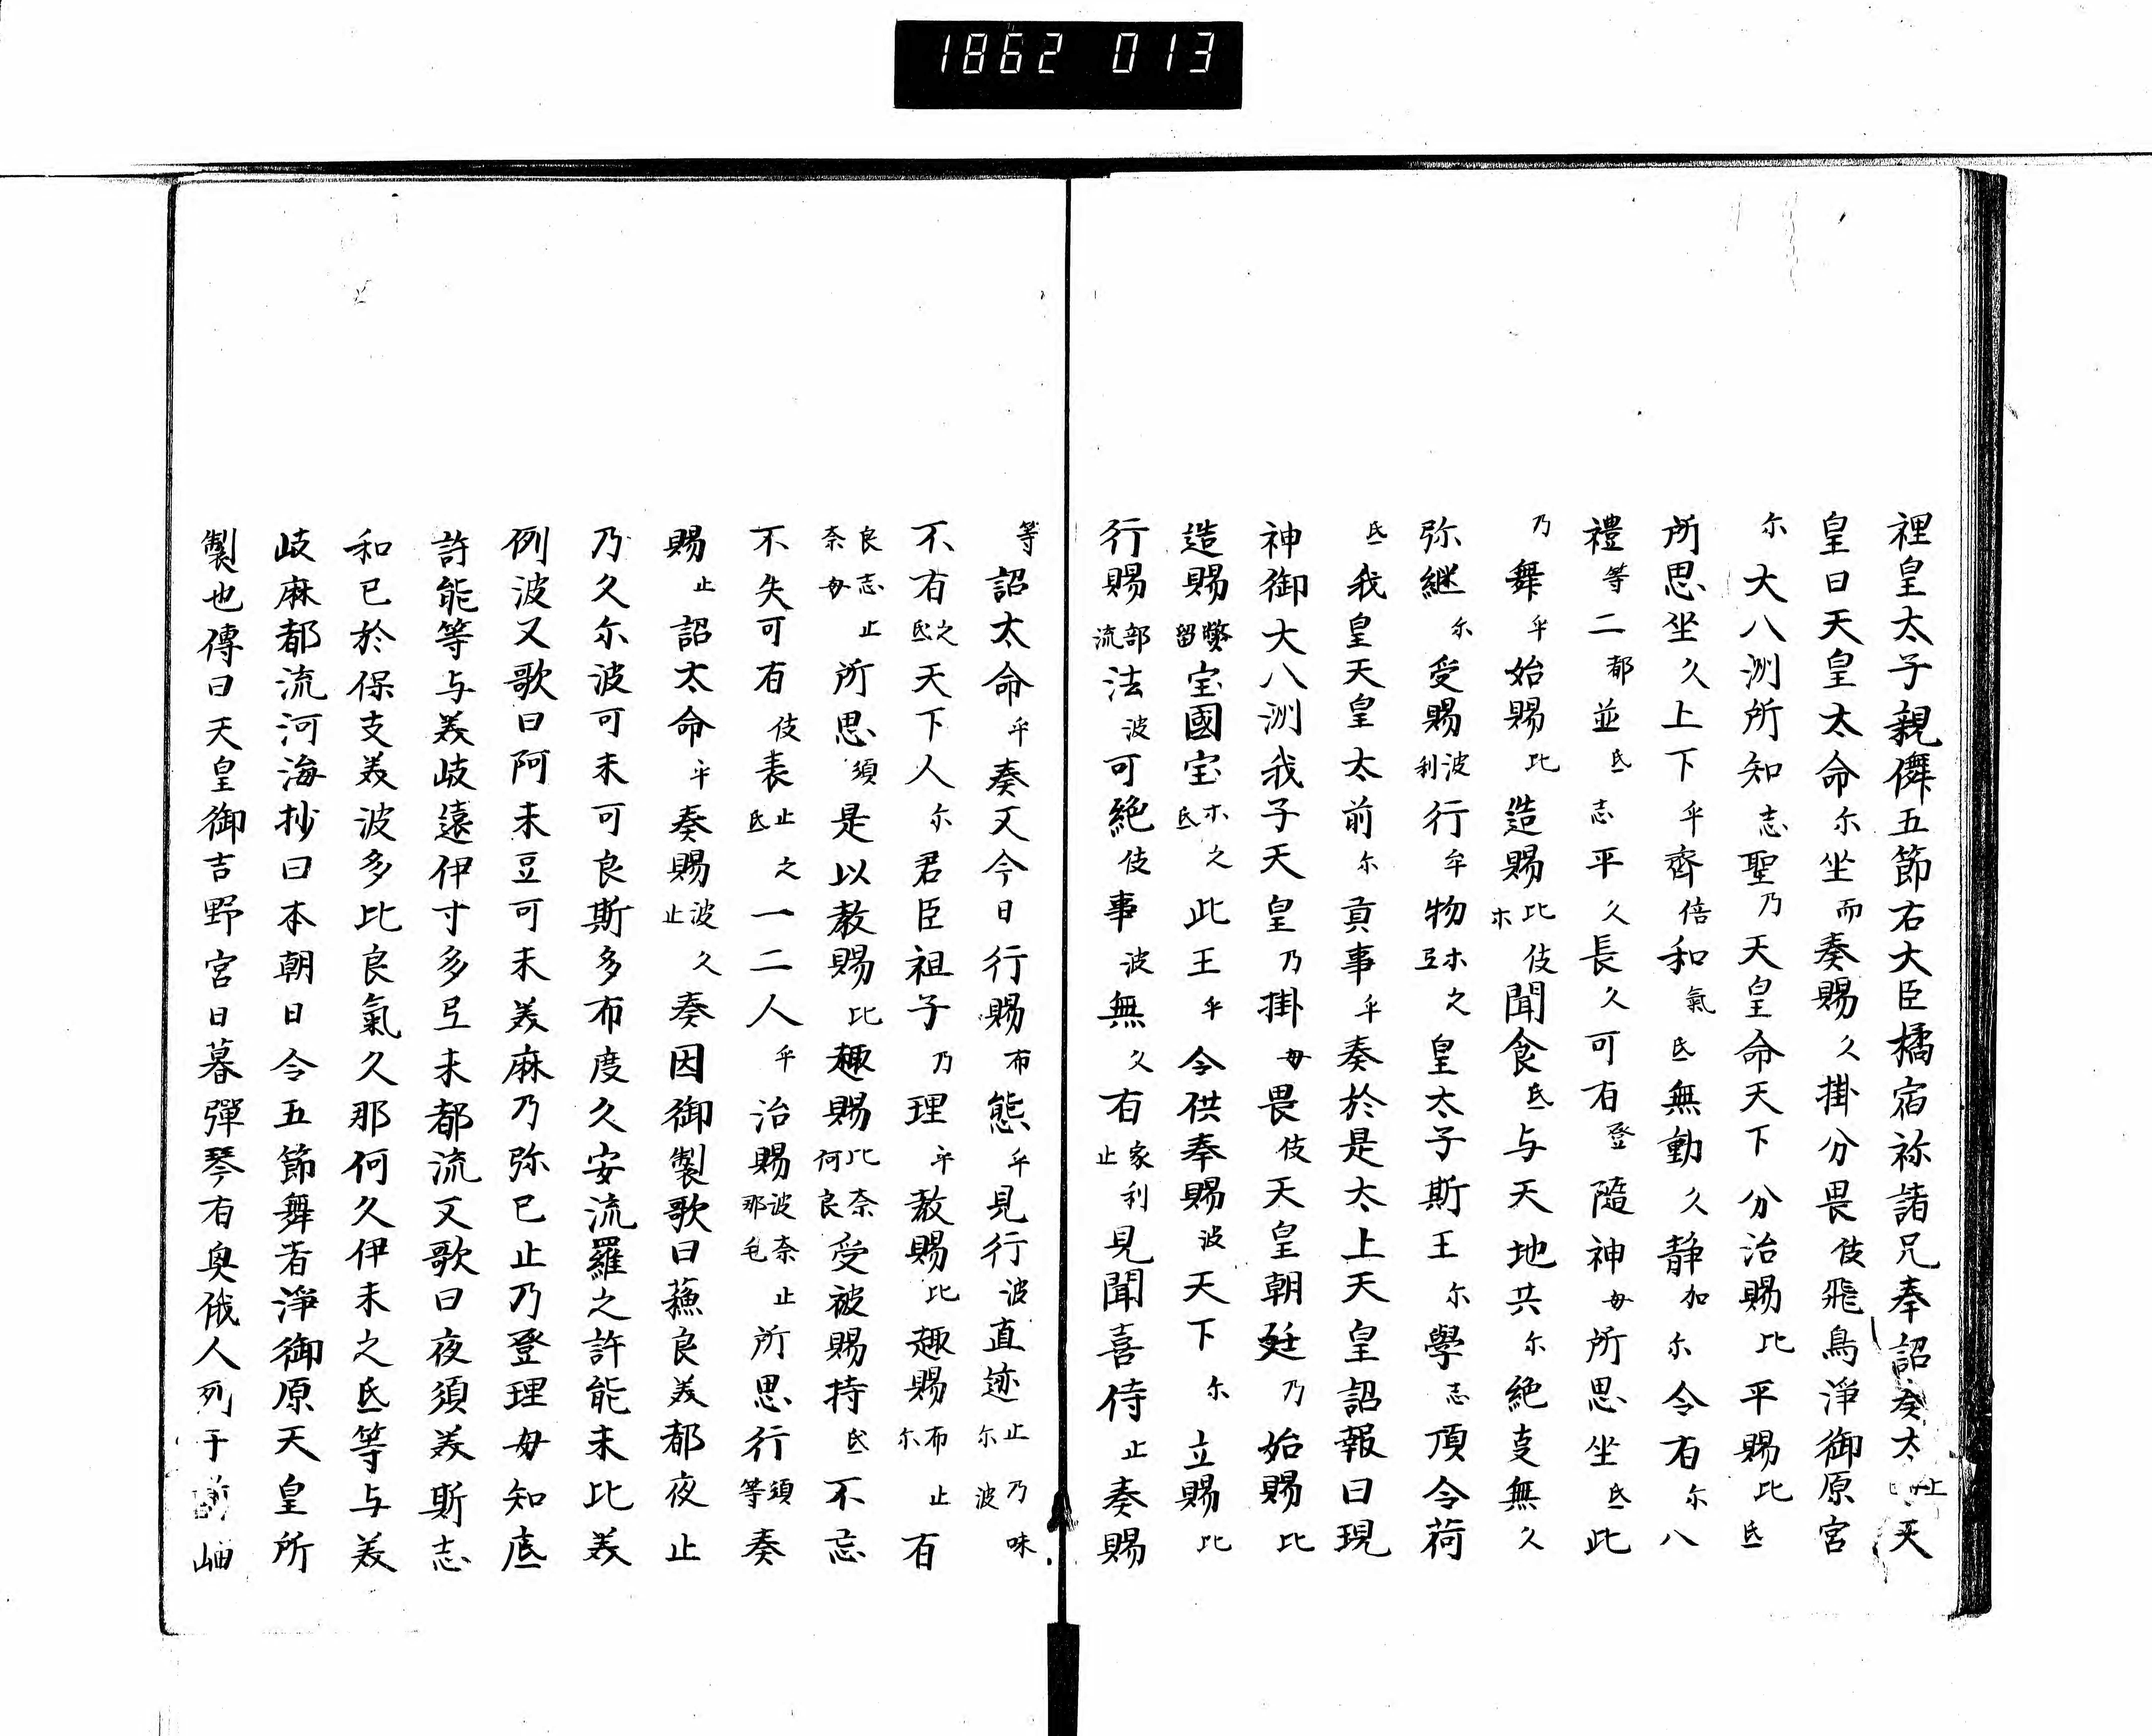 1862 013
裡皇太子親儛五節右大臣橘宿祢諸兄奉詔奏太上天
皇曰天皇太命尓坐而奏賜久掛分畏伎飛鳥淨御原宮
尓大八洲所知志聖乃天皇命天下分治賜比平賜比氐
所思坐久上下乎齊倍和氣氐無動久静加尓令有尓八
禮等二都並氐志平久長久可有登隨神毋所思坐氐此
乃舞乎始賜比造賜比木伎聞食氐与天地共尓絶支無久
弥継尓受賜波利行牟物木亙之皇太子斯王尓學志頂令荷
氐我皇天皇太前尓貢事乎奏於是太上天皇詔報曰現
神御大八洲我子天皇乃掛毋畏伎天皇朝廷乃始賜比
造賜弊留宝國宝木氐之此王乎令供奉賜波天下尓立賜比
行賜部流法波可絶伎事波無久有家止利見聞喜侍止奏賜
等詔太命乎奏又今日行賜布態乎見行波直迹止尓乃波味
不有之氐天下人尓君臣祖子乃理乎教賜比趣賜布尓止有
良志奈毋止所思須是以教賜比趣賜比何奈良受被賜持氐不忘
不失可有伎表止氐之一二人乎治賜波那奈毛止所思行須等奏
賜止詔太命乎奏賜波止久奏因御製歌曰蘓良美都夜止
乃久尓波可未可良斯多布度久安流羅之許能未比美
例波又歌曰阿末豆可未美麻乃弥已止乃登理毋知底
許能等与美岐遠伊寸多弖末都流又歌曰夜須美斯志
和已於保支美波多比良氣久那何久伊末之氐等与美
岐麻都流河海抄曰本朝日令五節舞者淨御原天皇所
製也傳曰天皇御吉野宮日暮彈琴有奥俄人列于前岫